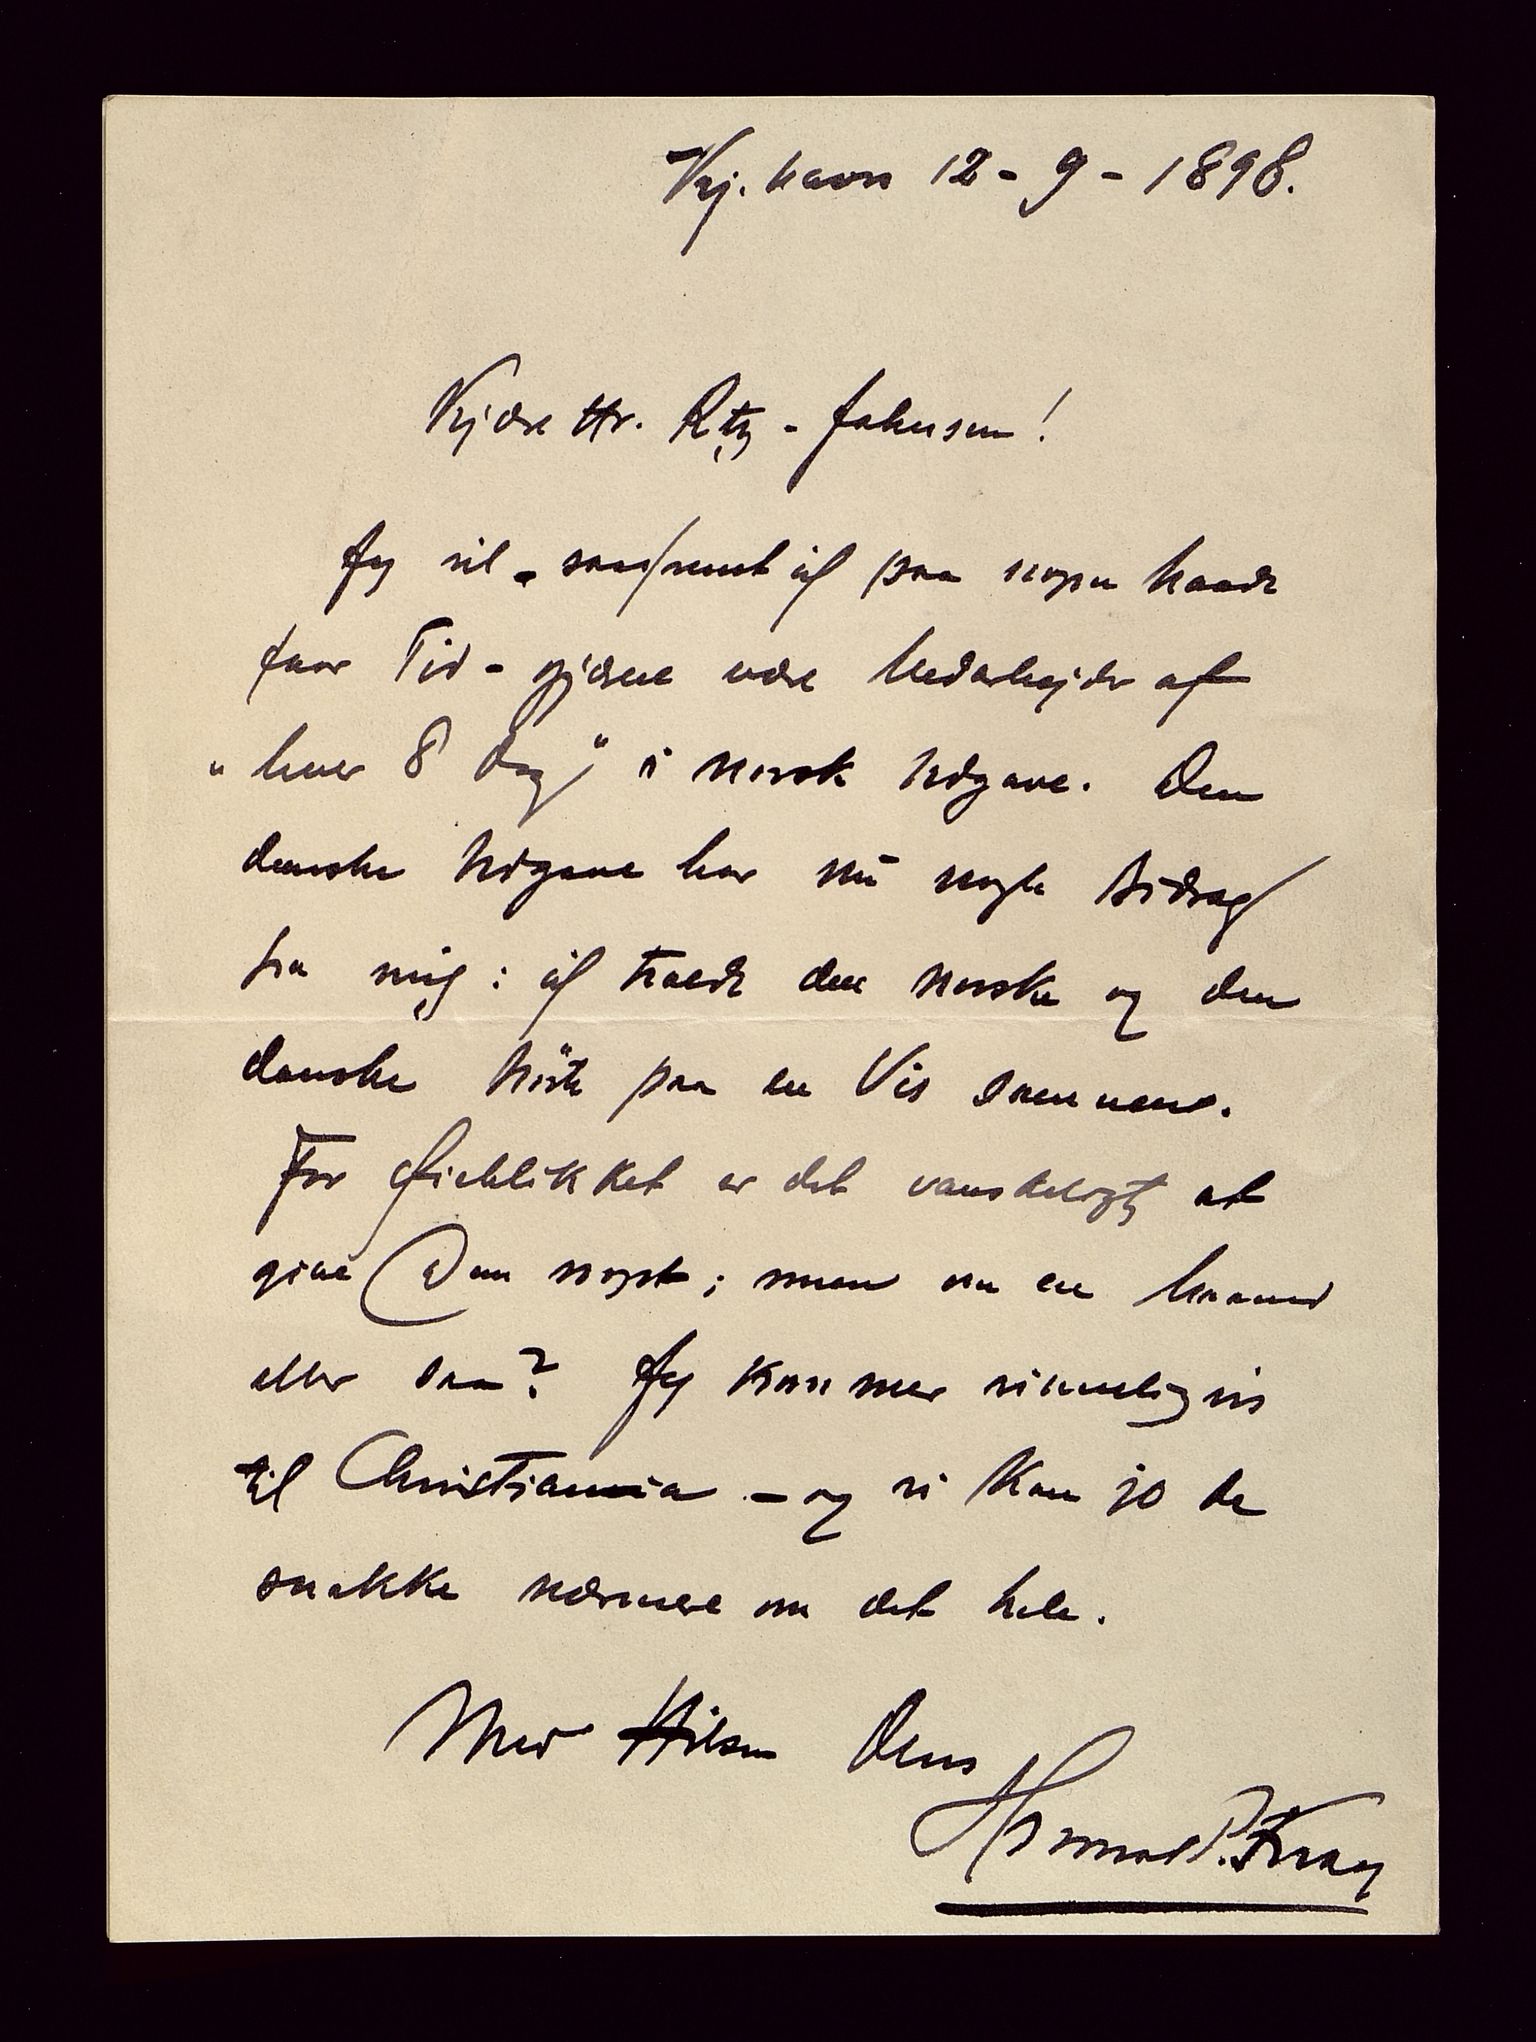 Kj.havn 12-9-1898.
Kjære Hr. Rtz-Johnsen!
Jeg vil - saafremt jeg paa nogen Maade
faar Tid - gjærne være Medarbejder af
"hver 8 Dag" i norsk Udgave. Den
danske Udgave har nu nogle Bidrag
fra mig: jeg troede den norske og den
danske paa en Vis sammen.
For Øieblikket er det vanskeligt at
give Dem noget; men om en Maaned
eller saa? Jeg kommer rimeligvis
til Christiania - og vi kan jo da
snakke nærmere om det hele.
Med Hilsen Deres
Thomas P. Krag